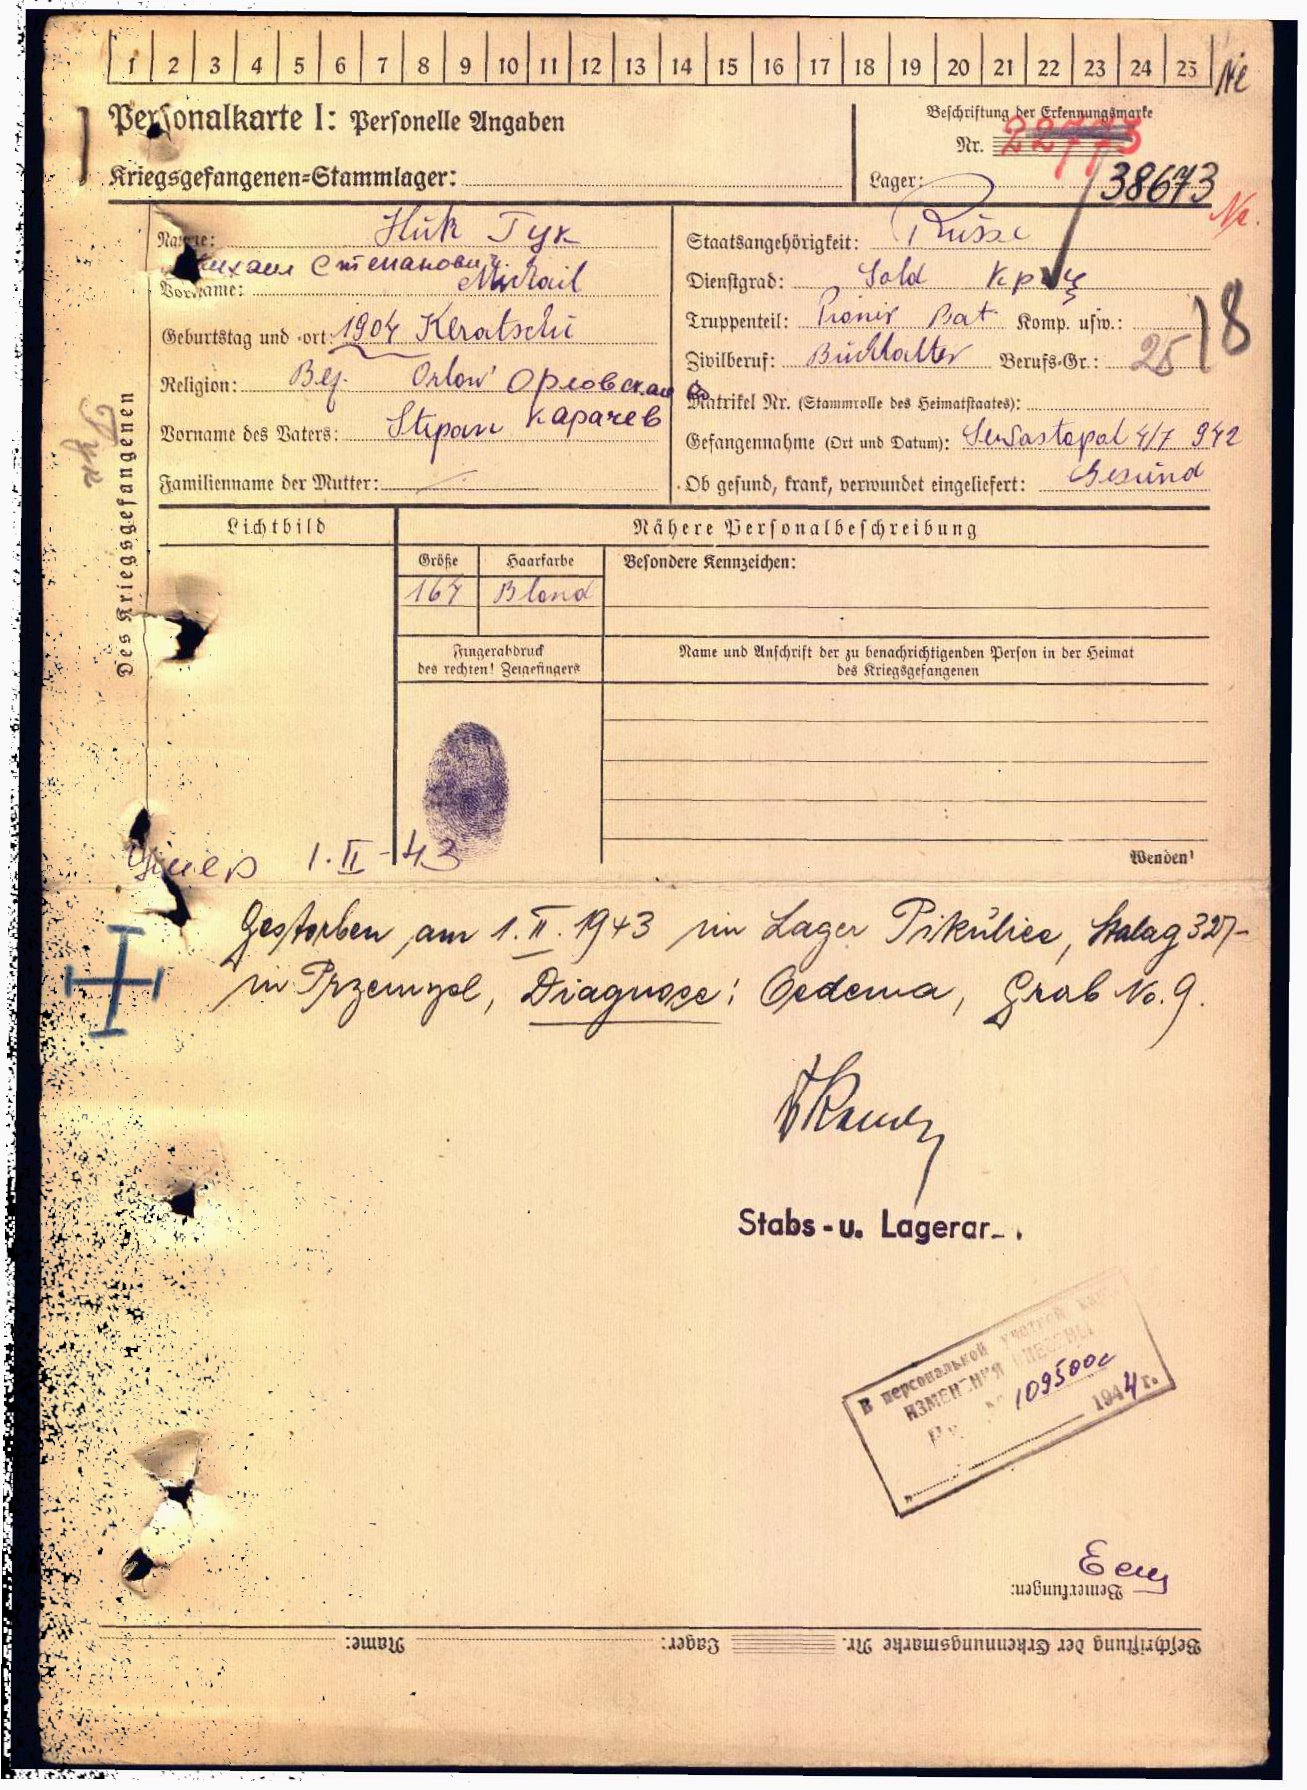 1 2 3 4 5 6 7 8 9 10 11 12 13 14 15 16 17 18 19 20 21 22 23 24 25
Personalkarte I: Personelle Angaben
Beschriftung der Erkennungsmarke
Nr. 22773
Kriegsgefangenen=Stammlager:
Lager: 38673
Des Kriegsgefangenen
Гук
Name: Huk Гук
Михаил Степанович
Vorname: Michail
Geburtstag und -ort: 1904 Keratschi
Religion: Orlow Орловская
Vorname des Vaters: Stepan Карачев
Familienname der Mutter:
Staatsangehörigkeit: Russe
Dienstgrad: Sold Кр-ц
Truppenteil: Pionir Bat Komp. usw.:
Zivilberuf: Buchhalter Berufs=Gr.: 25
18
Matrikel Nr. (Stammrolle des Heimatstaates):
Gefangennahme (Ort und Datum): Sewastopol 4/7 942
Ob gesund, krank, verwundet eingeliefert: Gesund
Lichtbild
Nähere Personalbeschreibung
Größe Haarfarbe Besondere Kennzeichen:
164 Blond
Fingerabdruck
des rechten! Zeigefingers
Name und Anschrift der zu benachrichtigenden Person in der Heimat
des Kriegsgefangenen
Wenden!
Умер 1.II-43
Gestorben am 1.II.1943 im Lager Pikulice, Stalag 327-
in Przemysl, Diagnose: Oedema, Grab No. 9.
Stabs-u. Lagerar
В персональной учетной карте
ИЗМЕНЕНИЯ ВНЕСЕНЫ
№ 109500с
1944 г.
Bemerkungen:
Beschriftung der Erkennungsmarke Nr. Lager: Name: